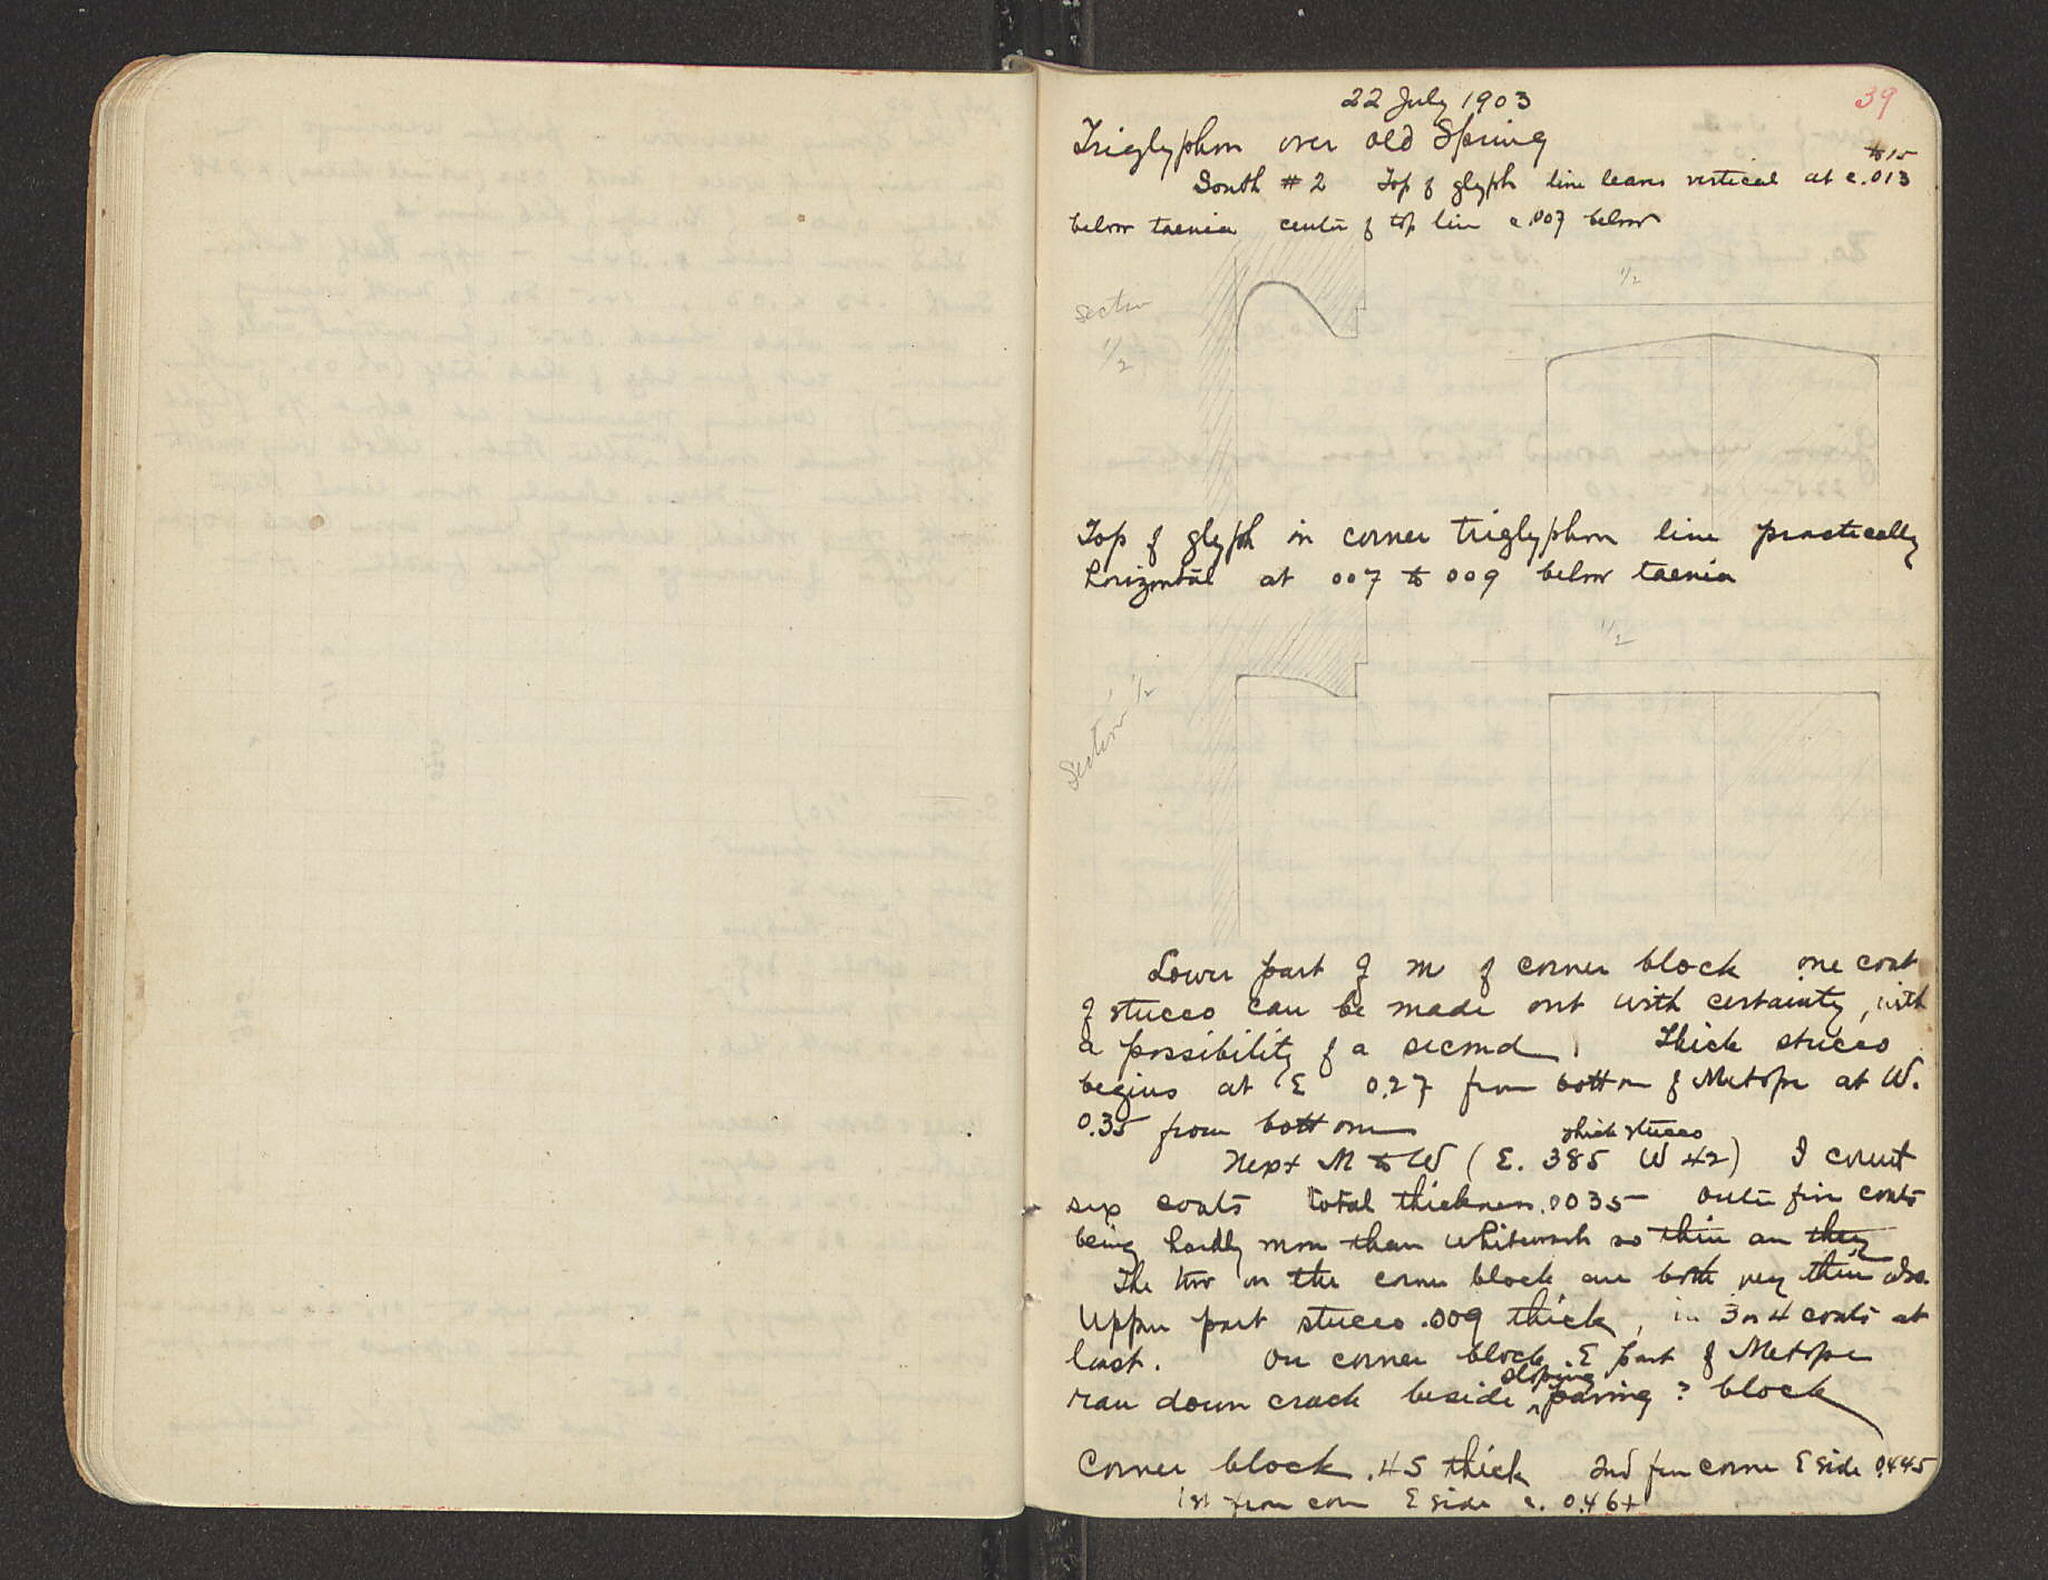 39
22 July 1903
Triglyphon over old Spring
to 15
South # 2 Top of glyph line leaves vertical at c .013
below taenia center of top line c .007 below
Section
1/2
1/2
Top of glyph in corner triglyphon line practically
horizontal at 007 to 009 below taenia
1/2
Section 1/2
Lower part of M of corner block one coat
of stucco can be made out with certainty, with
a possibility of a second. Thick stucco
begins at E 0.27 from bottom of Metope at W.
0.35 from bottom
thick stucco
Next M to W (E. 385 W 42) I count
six coats total thickness .0035 outer five coats
being hardly more than whitewash so thin are they
The two on the corner block are both very thin also
Upper part stucco .009 thick, in 3 or 4 coats at
least. On corner block E part of Metope
sloping
ran down crack beside ^ paving ? block
Corner block .45 thick 2nd from corner E side 0.445
1st from corn E side c. 0.46+